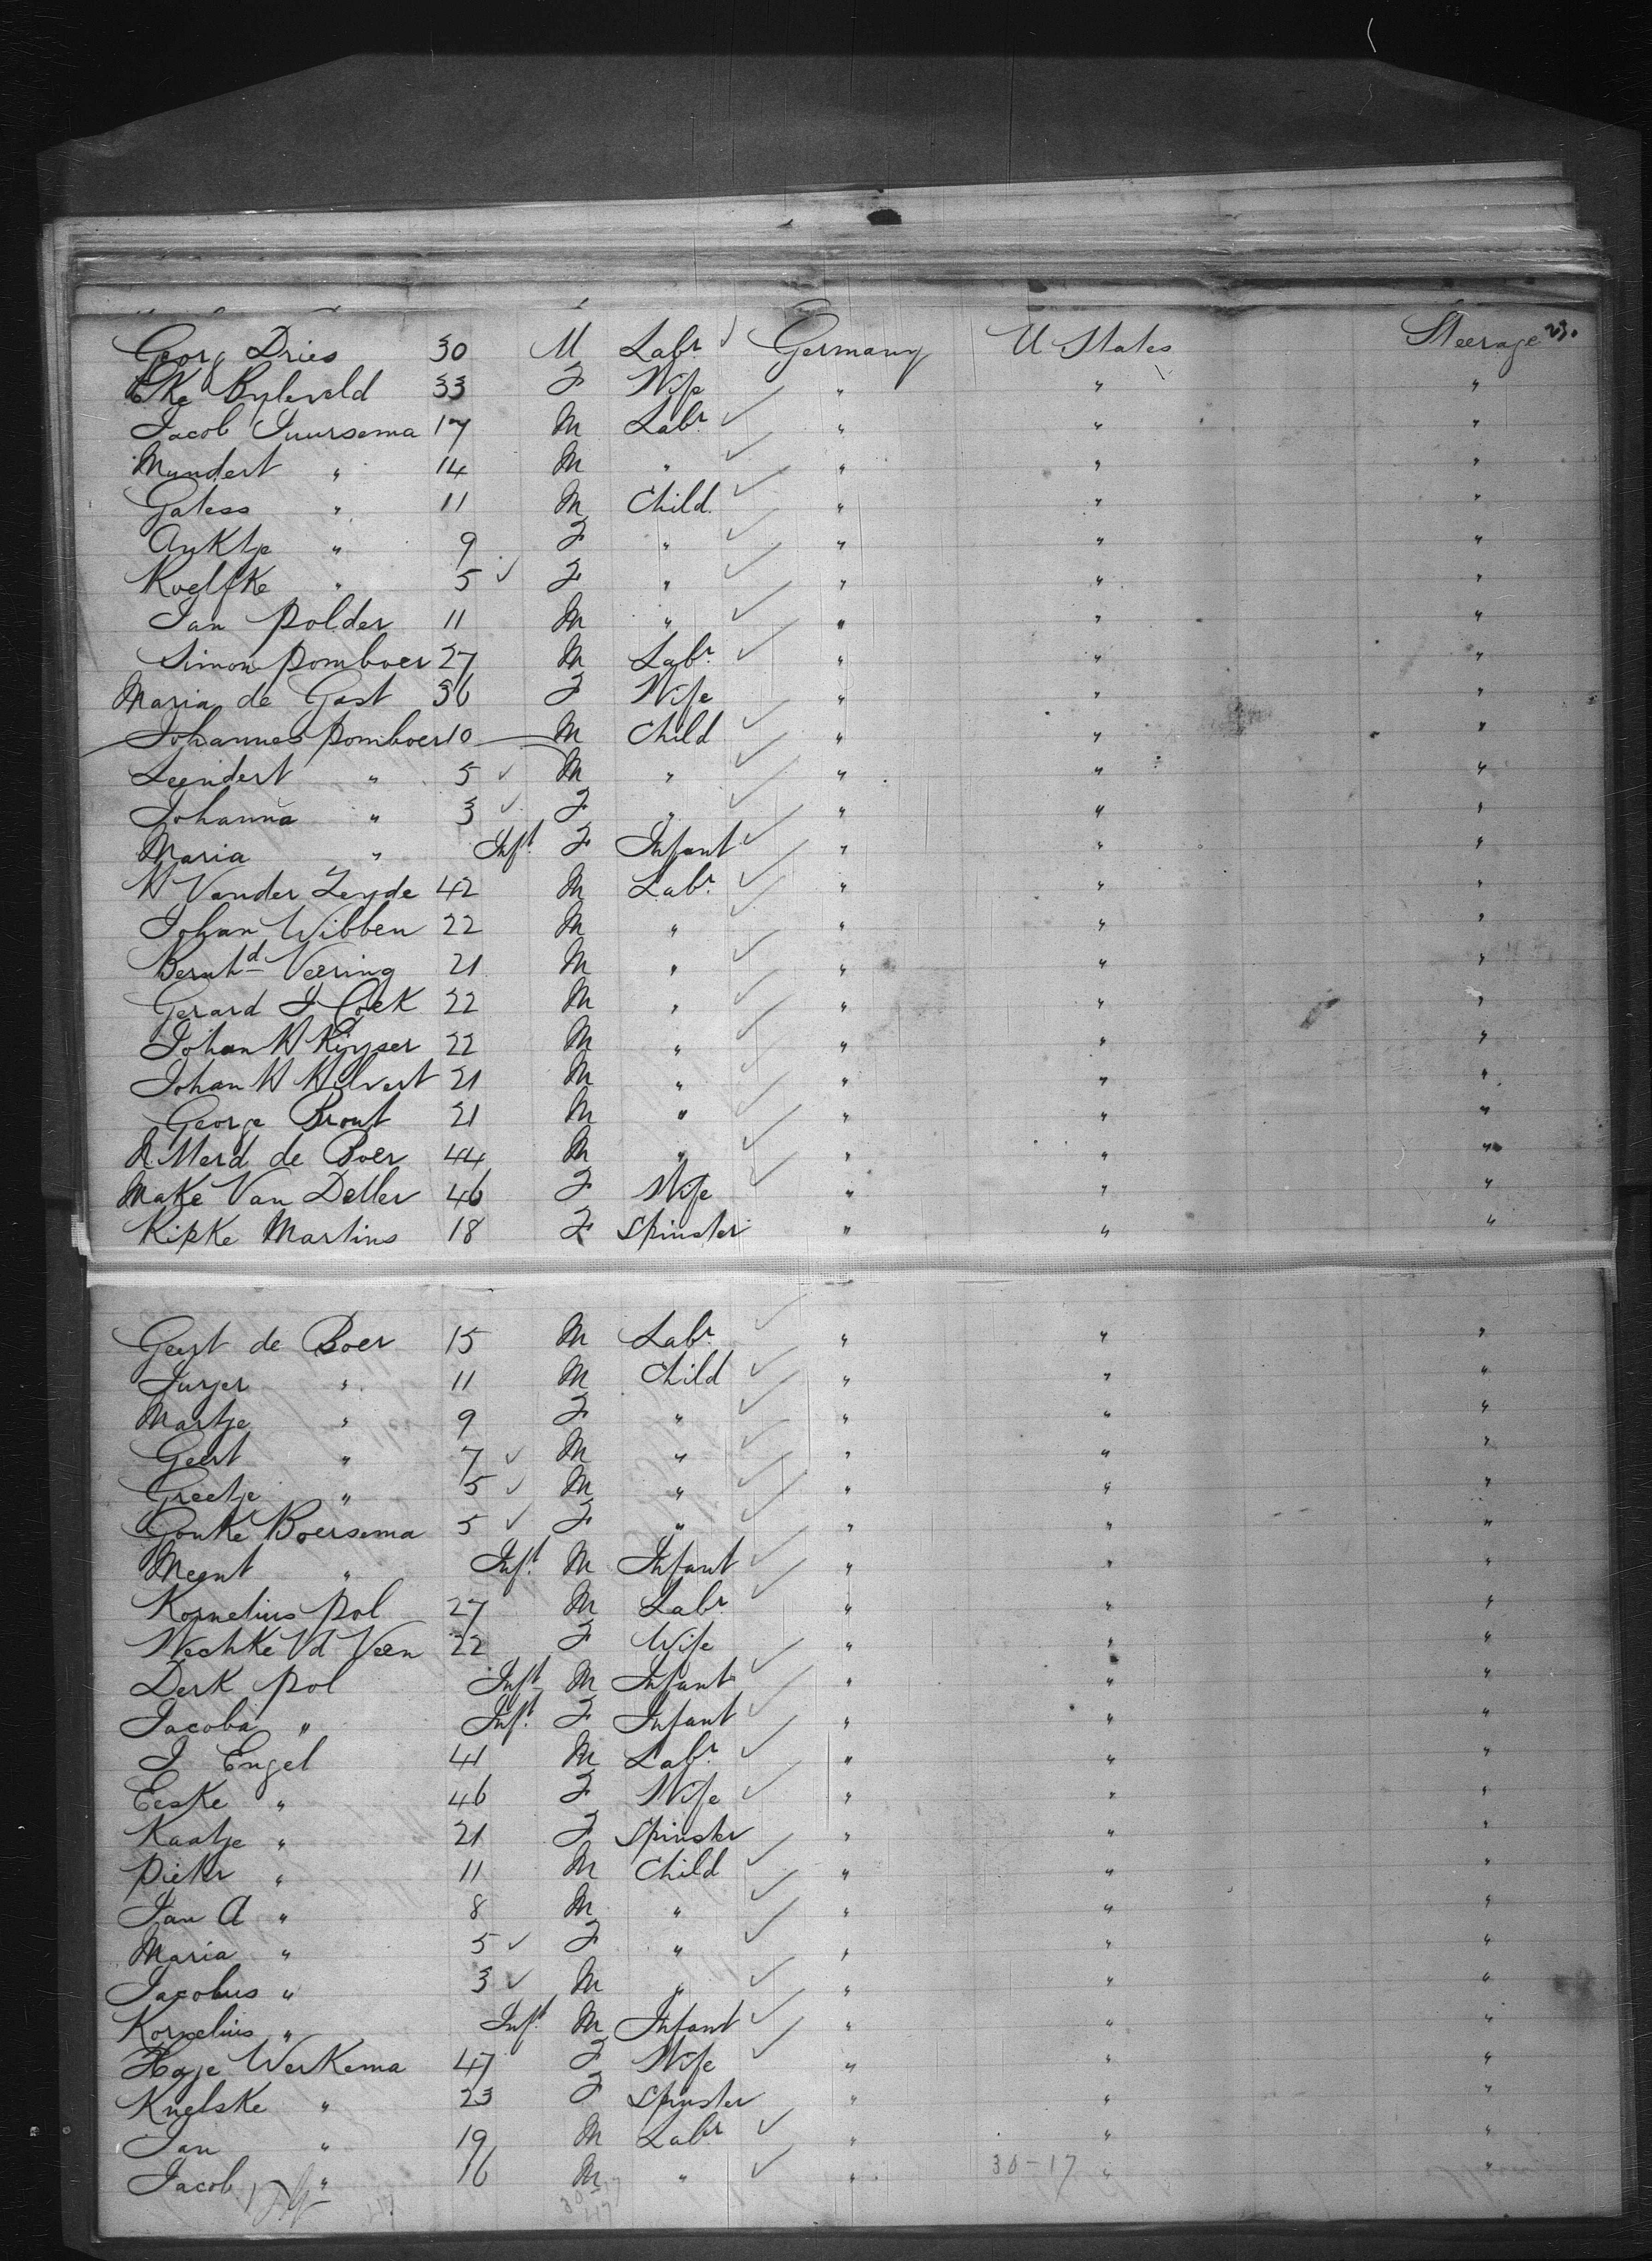 Georg Dries 30 M Labr Germany U States Steerage 23.
Eke Byleveld 33 F Wife " " "
Jacob Juursema 17 M Labr " " "
Mundert " 14 M " " " "
Galess " 11 M Child " " "
Anktje " 9 F " " " "
Roelfke " 5 F " " " "
Jan Polder 11 M " " " "
Simon Pomboer 27 M Labr " " "
Maria de Gast 36 F Wife " " "
Johannes Pomboer 10 M Child " " "
Leendert " 5 M " " " "
Johanna " 3 F " " " "
Maria " Inft F Infant " " "
H Vander Zeyde 42 M Labr " " "
Johan Wibben 22 M " " " "
Bernhd Veering 21 M " " " "
Gerard J Coek 22 M " " " "
Johan H Keyser 22 M " " " "
Johan H Hilvert 21 M " " " "
George Bront 21 M " " " "
R Merd de Boer 44 M " " " "
Make Van Deller 46 F Wife " " "
Kipke Martins 18 F Spinster " " "
Geert de Boer 15 M Labr " " "
Jurjer " 11 M Child " " "
Martje " 9 F " " " "
Geert " 7 M " " " "
Greetje " 5 M " " " "
Gonke Boersema 5 F " " " "
Meent " Inft M Infant " " "
Kornelius Pol 27 M Labr " " "
Wechke Vd Veen 22 F Wife " " "
Derk Pol Inft M Infant " " "
Jacoba " Inft F Infant " " "
J Engel 41 M Labr " " "
Eeske " 46 F Wife " " "
Kaatje " 21 F Spinster " " "
Pieter " 11 M Child " " "
Jan A " 8 M " " " "
Maria " 5 F " " " "
Jacobus " 3 M " " " "
Kornelius " Inft M Infant " " "
Haje Werkema 47 F Wife " " "
Knelske " 23 F Spinster " " "
Jan " 19 M Labr " " "
Jacob " 16 M " " 30-17 " "
47 30-17
47